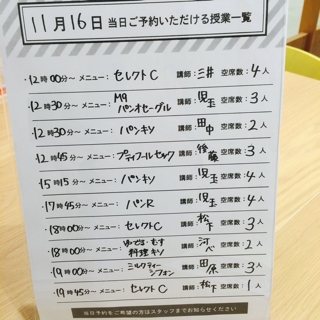 11月16日 当日ご予約いただける授業一覧
・12時00分〜 メニュー：セレクトC 講師：三井 空席数：4人
・12時30分〜 メニュー：M9 パンオセーグル 講師：児玉 空席数：3人
・12時30分〜 メニュー：パンキソ 講師：田中 空席数：2人
・12時45分〜 メニュー：プティフールセック 講師：後藤 空席数：3人
・15時15分〜 メニュー：パンキソ 講師：児玉 空席数：4人
・17時45分〜 メニュー：パンR 講師：児玉 空席数：4人
・18時00分〜 メニュー：セレクトC 講師：松下 空席数：3人
・18時00分〜 メニュー：ゆでる・むす 料理キソ 講師：河べ 空席数：2人
・19時00分〜 メニュー：ミルクティーシフォン 講師：田原 空席数：3人
・19時45分〜 メニュー：セレクトC 講師：松下 空席数：1人
当日予約をご希望の方はスタッフまでお知らせください